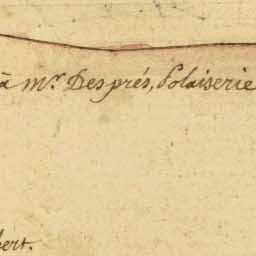 à Mr. Després, Polaiserie
bert.